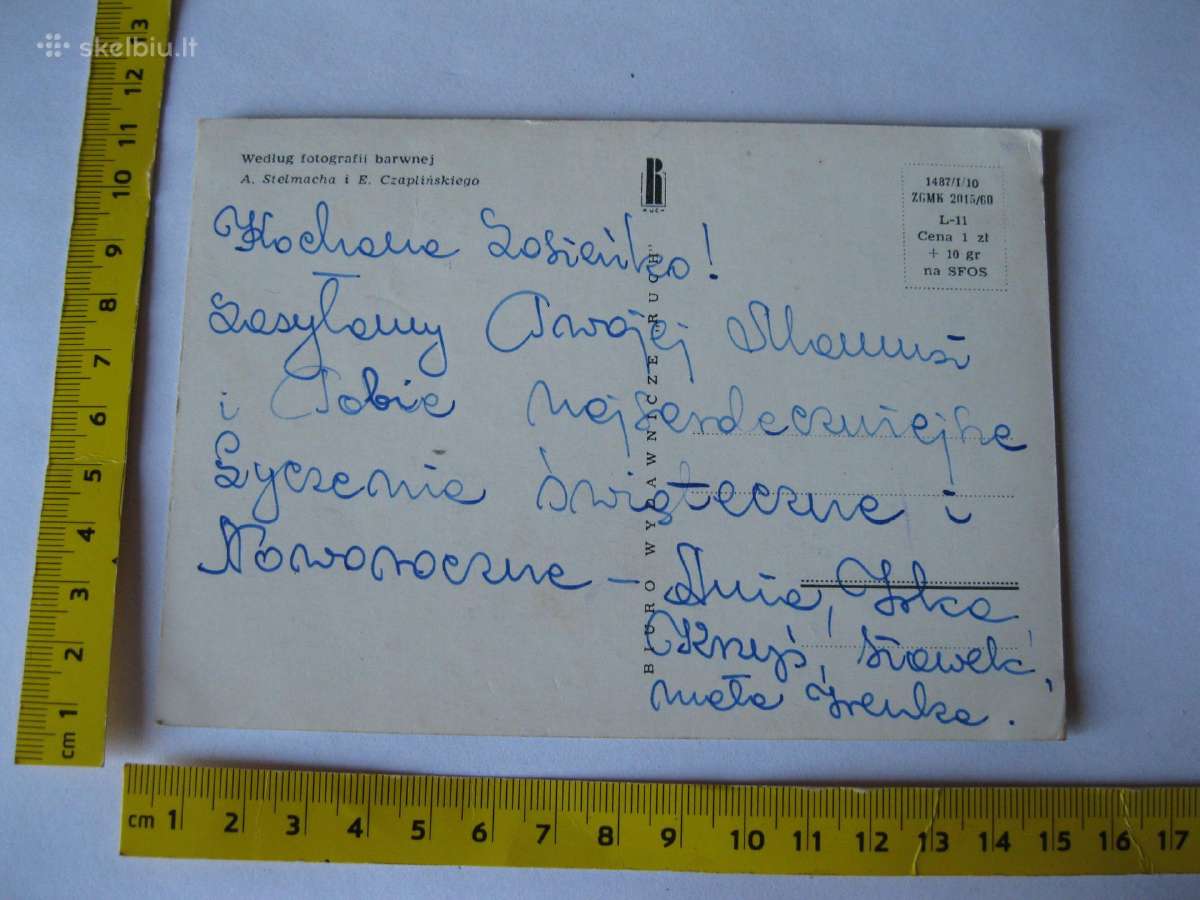 skelbiu.lt
Według fotografii barwnej
A. Stelmacha i E. Czaplińskiego
RUCH
1487/I/10
ZGMK 2015/60
L-11
Cena 1 zł
+ 10 gr
na SFOS
BIURO WYDAWNICZE „RUCH”
Kochana Zosieńko!
Zasyłamy Twojej Mamusi
i Tobie najserdeczniejsze
Życzenia świąteczne i
Noworoczne – Ania,
Krzyś, Sławek,
mała Irenka.
cm 1 2 3 4 5 6 7 8 9 10 11 12 13
cm 1 2 3 4 5 6 7 8 9 10 11 12 13 14 15 16 17